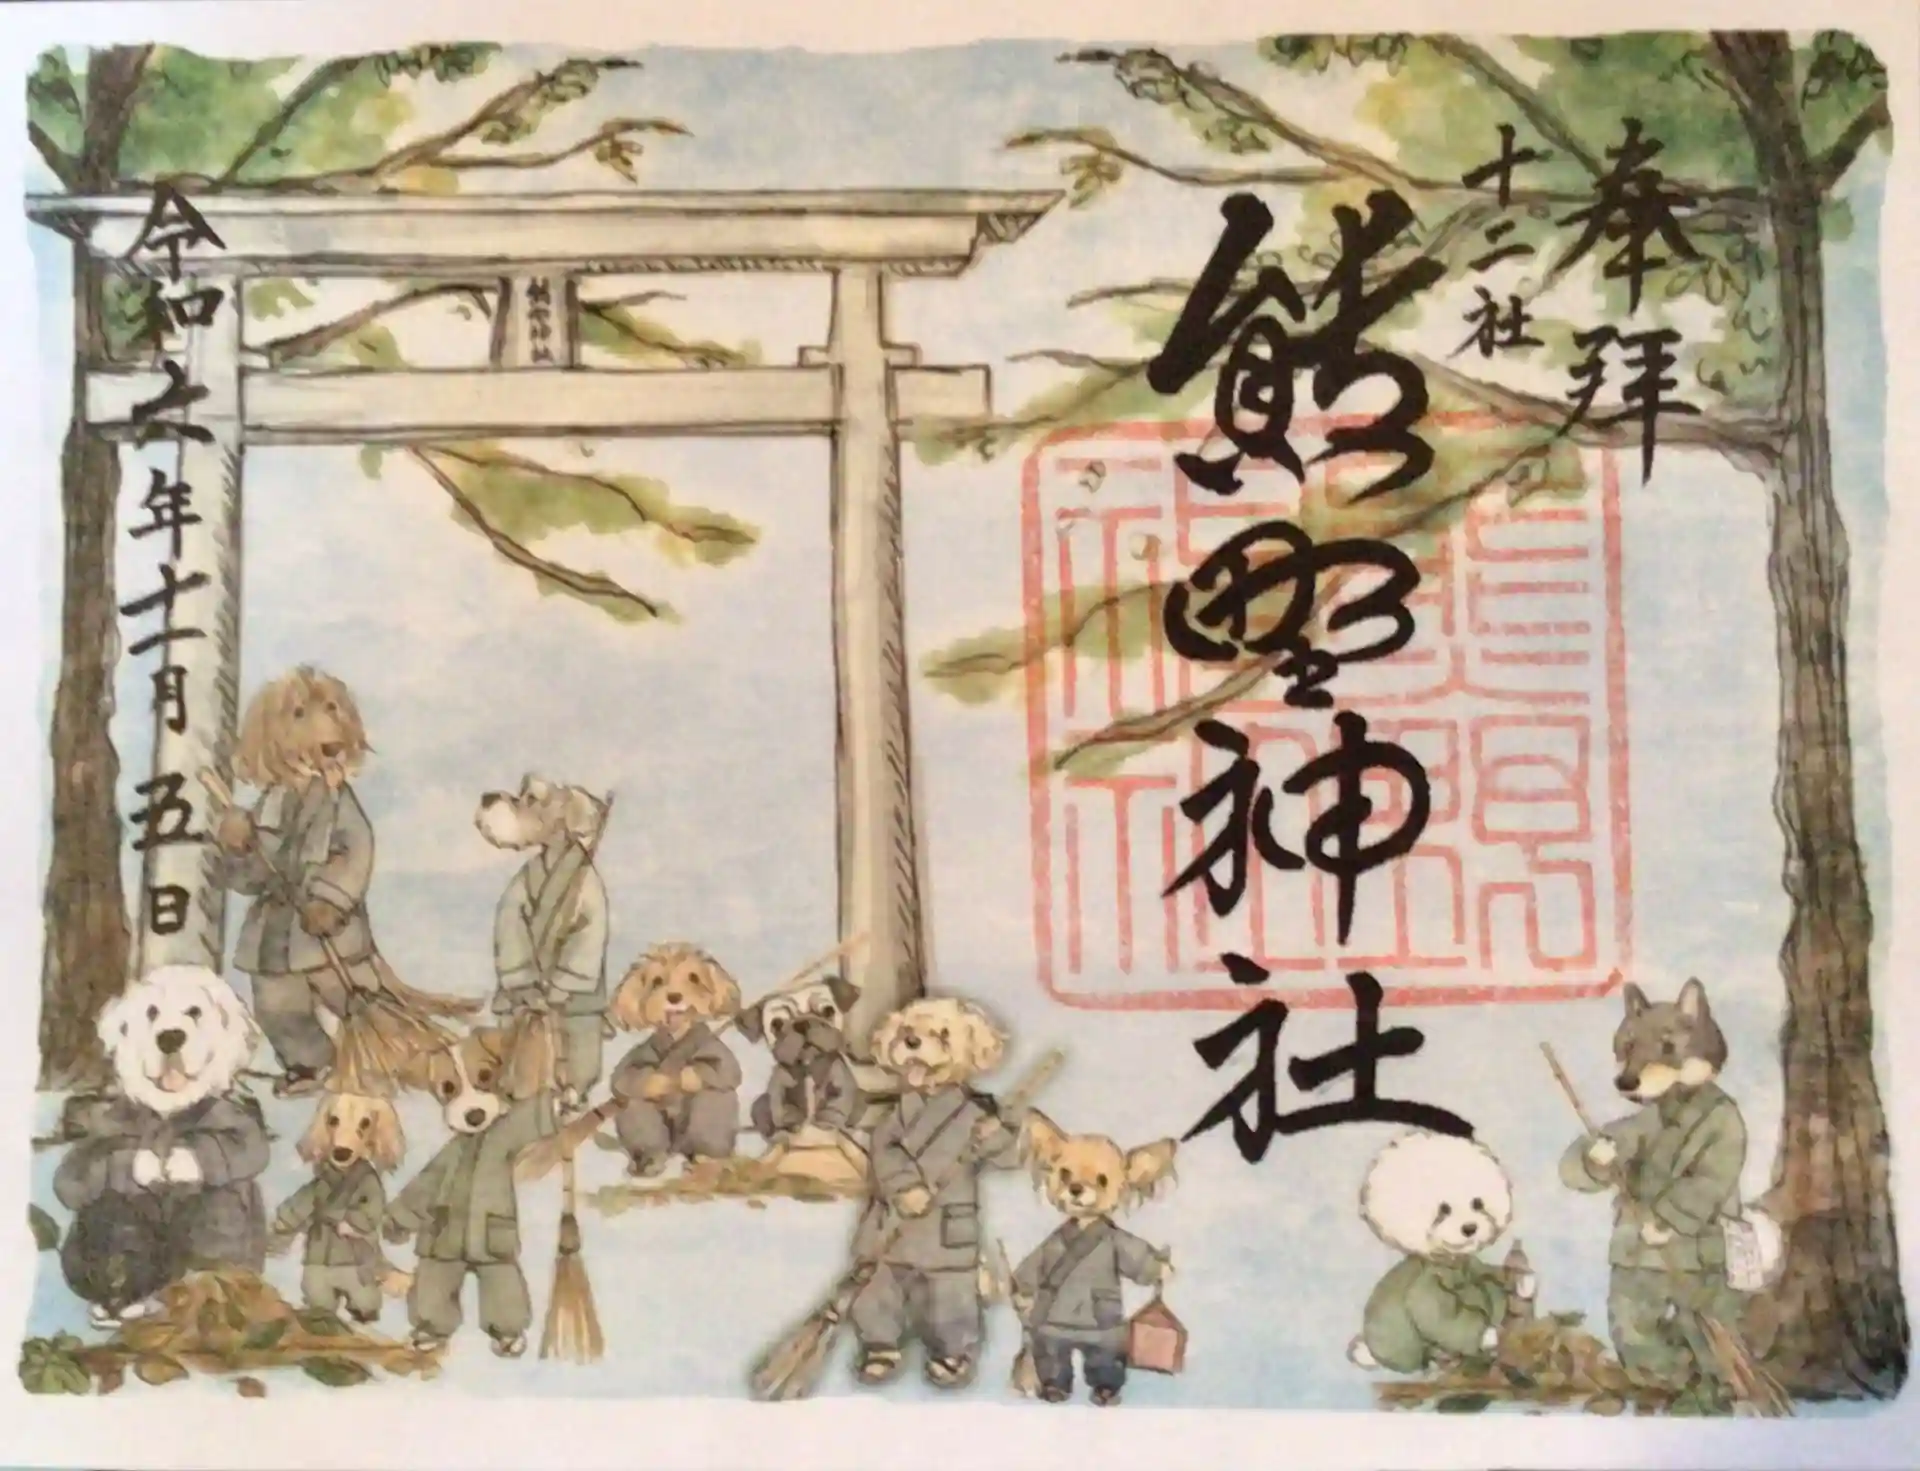 奉拝
十二社
熊野神社
熊野神社
令和六年十一月五日